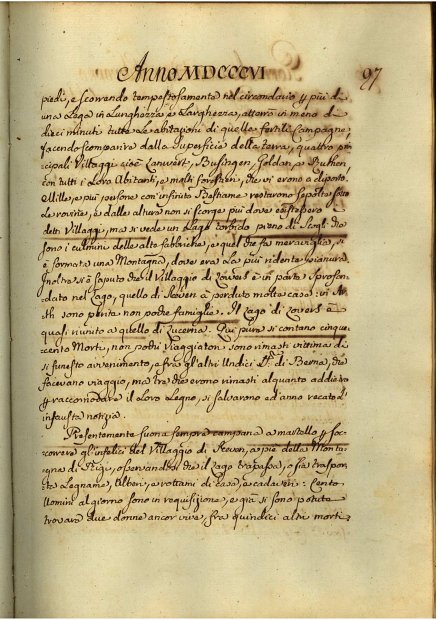 Anno MDCCCVI
97
piedi, e scorrendo tempestosamente nel circondario p più di
una Lega in Lunghezza, e Larghezza, atterrò in meno di
dieci minuti tutte le abitazioni di quelle fertili Campagne,
facendo scomparire dalla superficie della terra, quattro prin-
cipali Villaggi cioè Lanvert, Busingen, Goldan, e Buthen
con tutti i Loro Abitanti, e molti forastieri, che vi erono a diporto.
Mille, e più persone con infinito Bestiame restarono sepolte sotto
le rovine, e dalle alture non si scorge più dove esistessero i
detti Villaggi, ma si vede un Lago torbido pieno di scogli che
sono i culmini delle alte fabbriche, e quel che fa meraviglia, si
è formata una Montagna, dove era la più ridente pianura.
Inoltre si è saputo che il Villaggio di è in parte sprofon-
dato nel Lago, quello di Seeven à perduto molte case: in Ar-
th sono perite non poche famiglie. Il Lago di è
quasi riunito a quello di Lucerna. Qui pure si contano cinque-
cento Morti, non pochi Viaggiatori sono rimasti vittima di
sì funesto avvenimento, e fra gl'altri Undici di Berna, che
facevano viaggio, ma tre che erono rimasti alquanto addietro
p raccomodare il Loro Legno, si salvarono ed anno recato l'
infausta notizia.
Presentemente suona sempre campana a martello p soc-
correre gl'infelici del Villaggio di Seeven, a piè della Monta-
gna di Rigi, osservandosi che il Lago trapassa, o sia traspor-
ta Legname, Alberi, e rottami di case, e cadaveri: Cento
Uomini al giorno sono in requisizione, e già si sono potute
trovare due donne ancor vive, fra quindici altri morti,